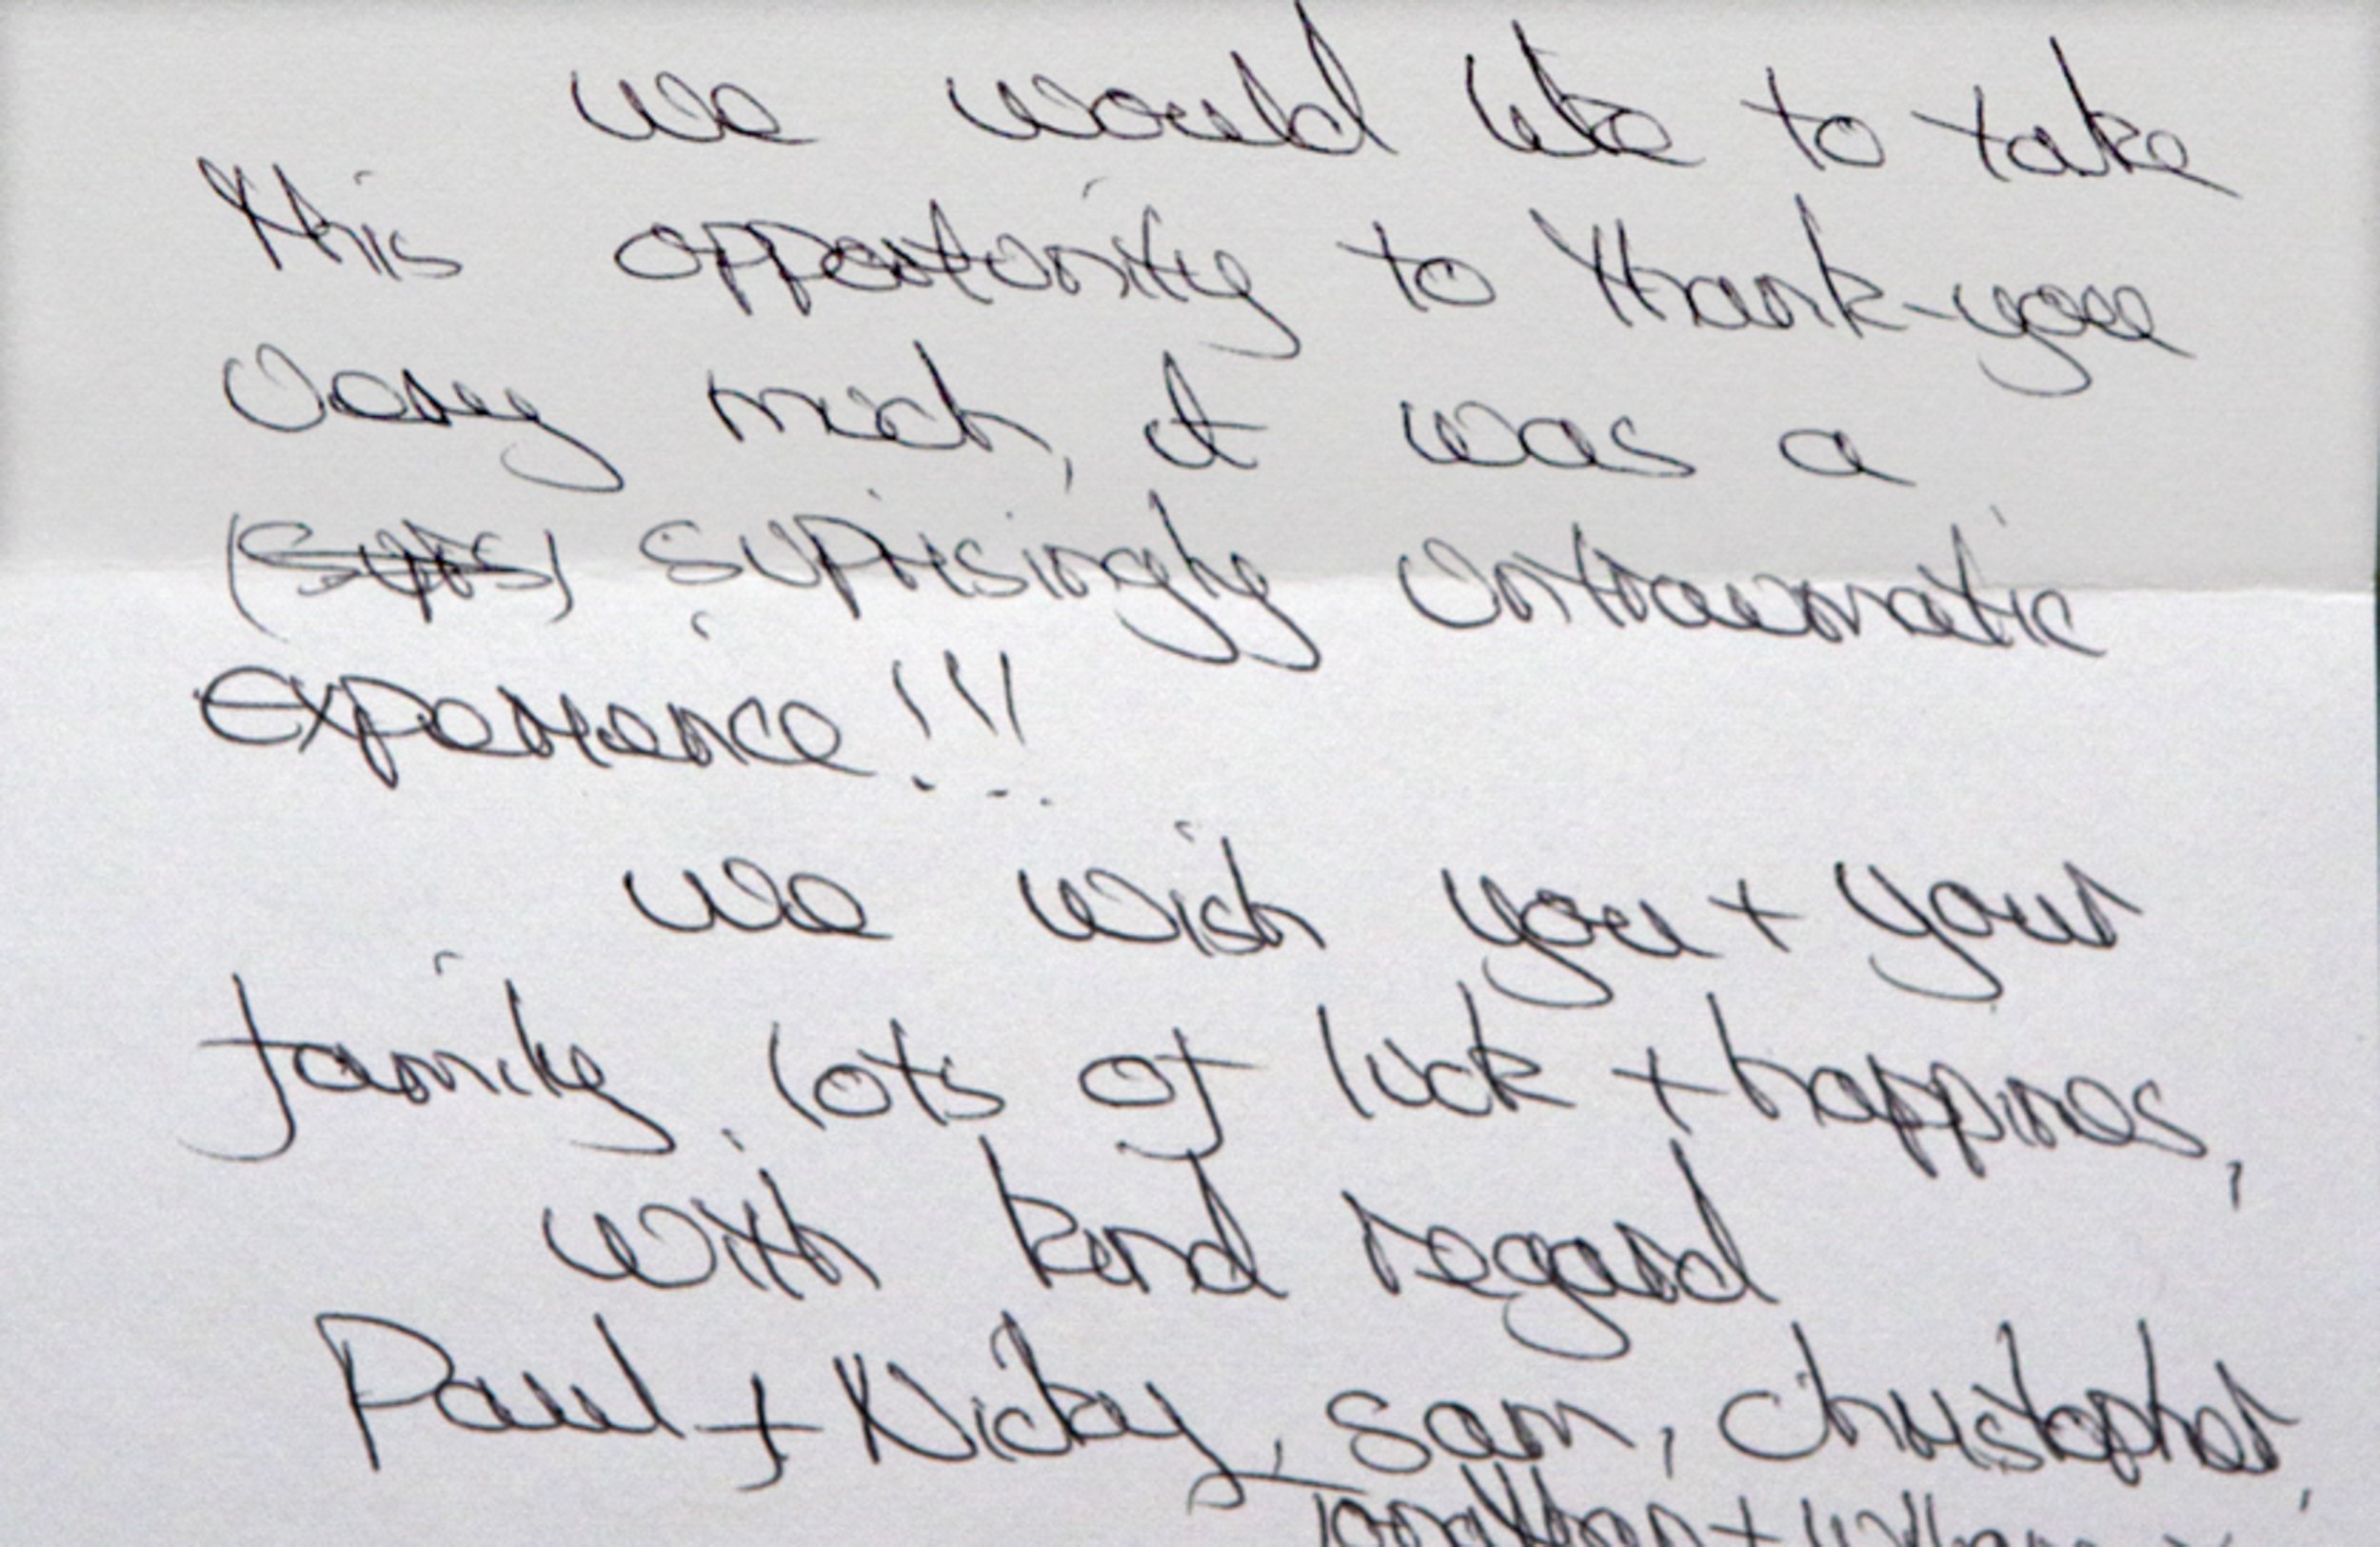 we would like to take
this opportunity to thank-you
very much, it was a
suprisingly untraumatic
experience!!!
we wish you + your
family. lots of luck + happines,
with kind regard
Paul + Nicky, Sam, Christopher,
Jonathan + William x